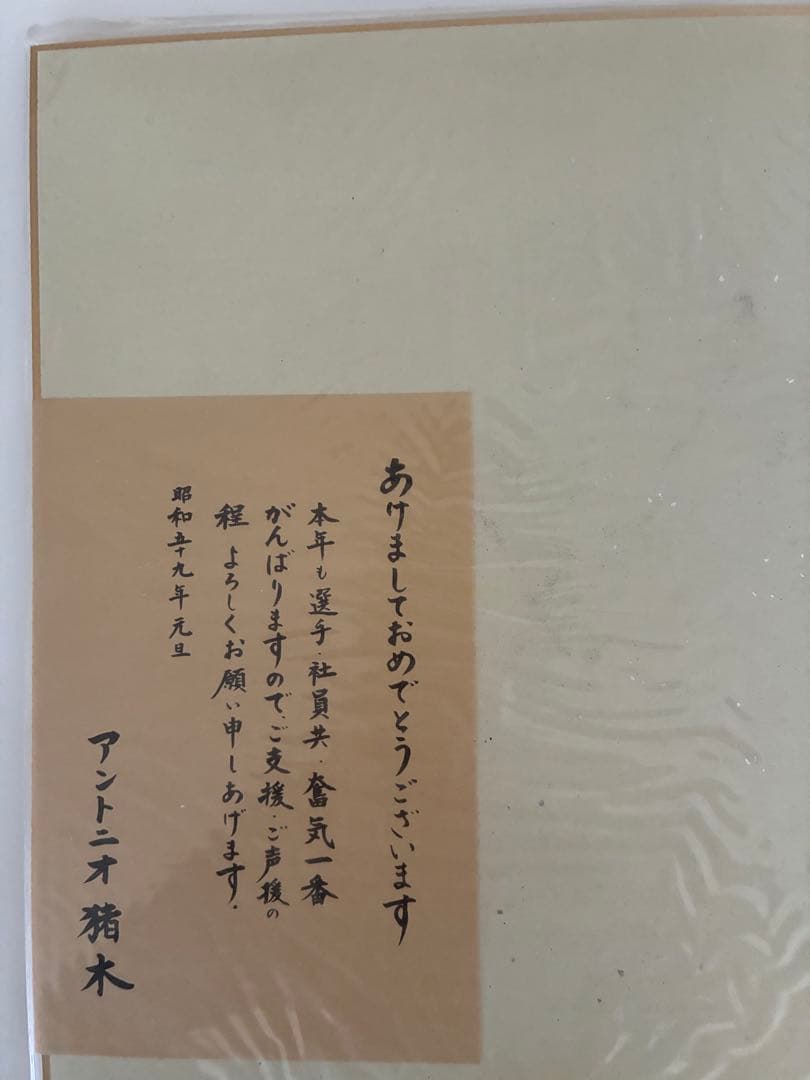 あけましておめでとうございます
本年も選手・社員共・奮気一番
がんばりますので、ご支援・ご声援の
程 よろしくお願い申しあげます。
昭和五十九年元旦
アントニオ猪木